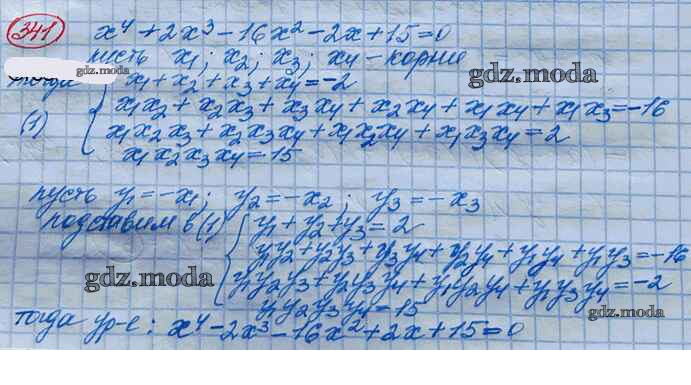 341
x⁴ + 2x³ - 16x² - 2x + 15 = 0
пусть x₁; x₂; x₃; x₄ - корни
gdz.moda gdz.moda
тогда x₁ + x₂ + x₃ + x₄ = -2
x₁x₂ + x₂x₃ + x₃x₄ + x₂x₄ + x₁x₄ + x₁x₃ = -16
(1) x₁x₂x₃ + x₂x₃x₄ + x₁x₂x₄ + x₁x₃x₄ = 2
x₁x₂x₃x₄ = 15
пусть y₁ = -x₁; y₂ = -x₂; y₃ = -x₃
подставим в (1) y₁ + y₂ + y₃ = 2
y₁y₂ + y₂y₃ + y₃y₄ + y₂y₄ + y₁y₄ + y₁y₃ = -16
gdz.moda
y₁y₂y₃ + y₂y₃y₄ + y₁y₂y₄ + y₁y₃y₄ = -2
y₁y₂y₃y₄ = 15
gdz.moda
тогда ур-е: x⁴ - 2x³ - 16x² + 2x + 15 = 0